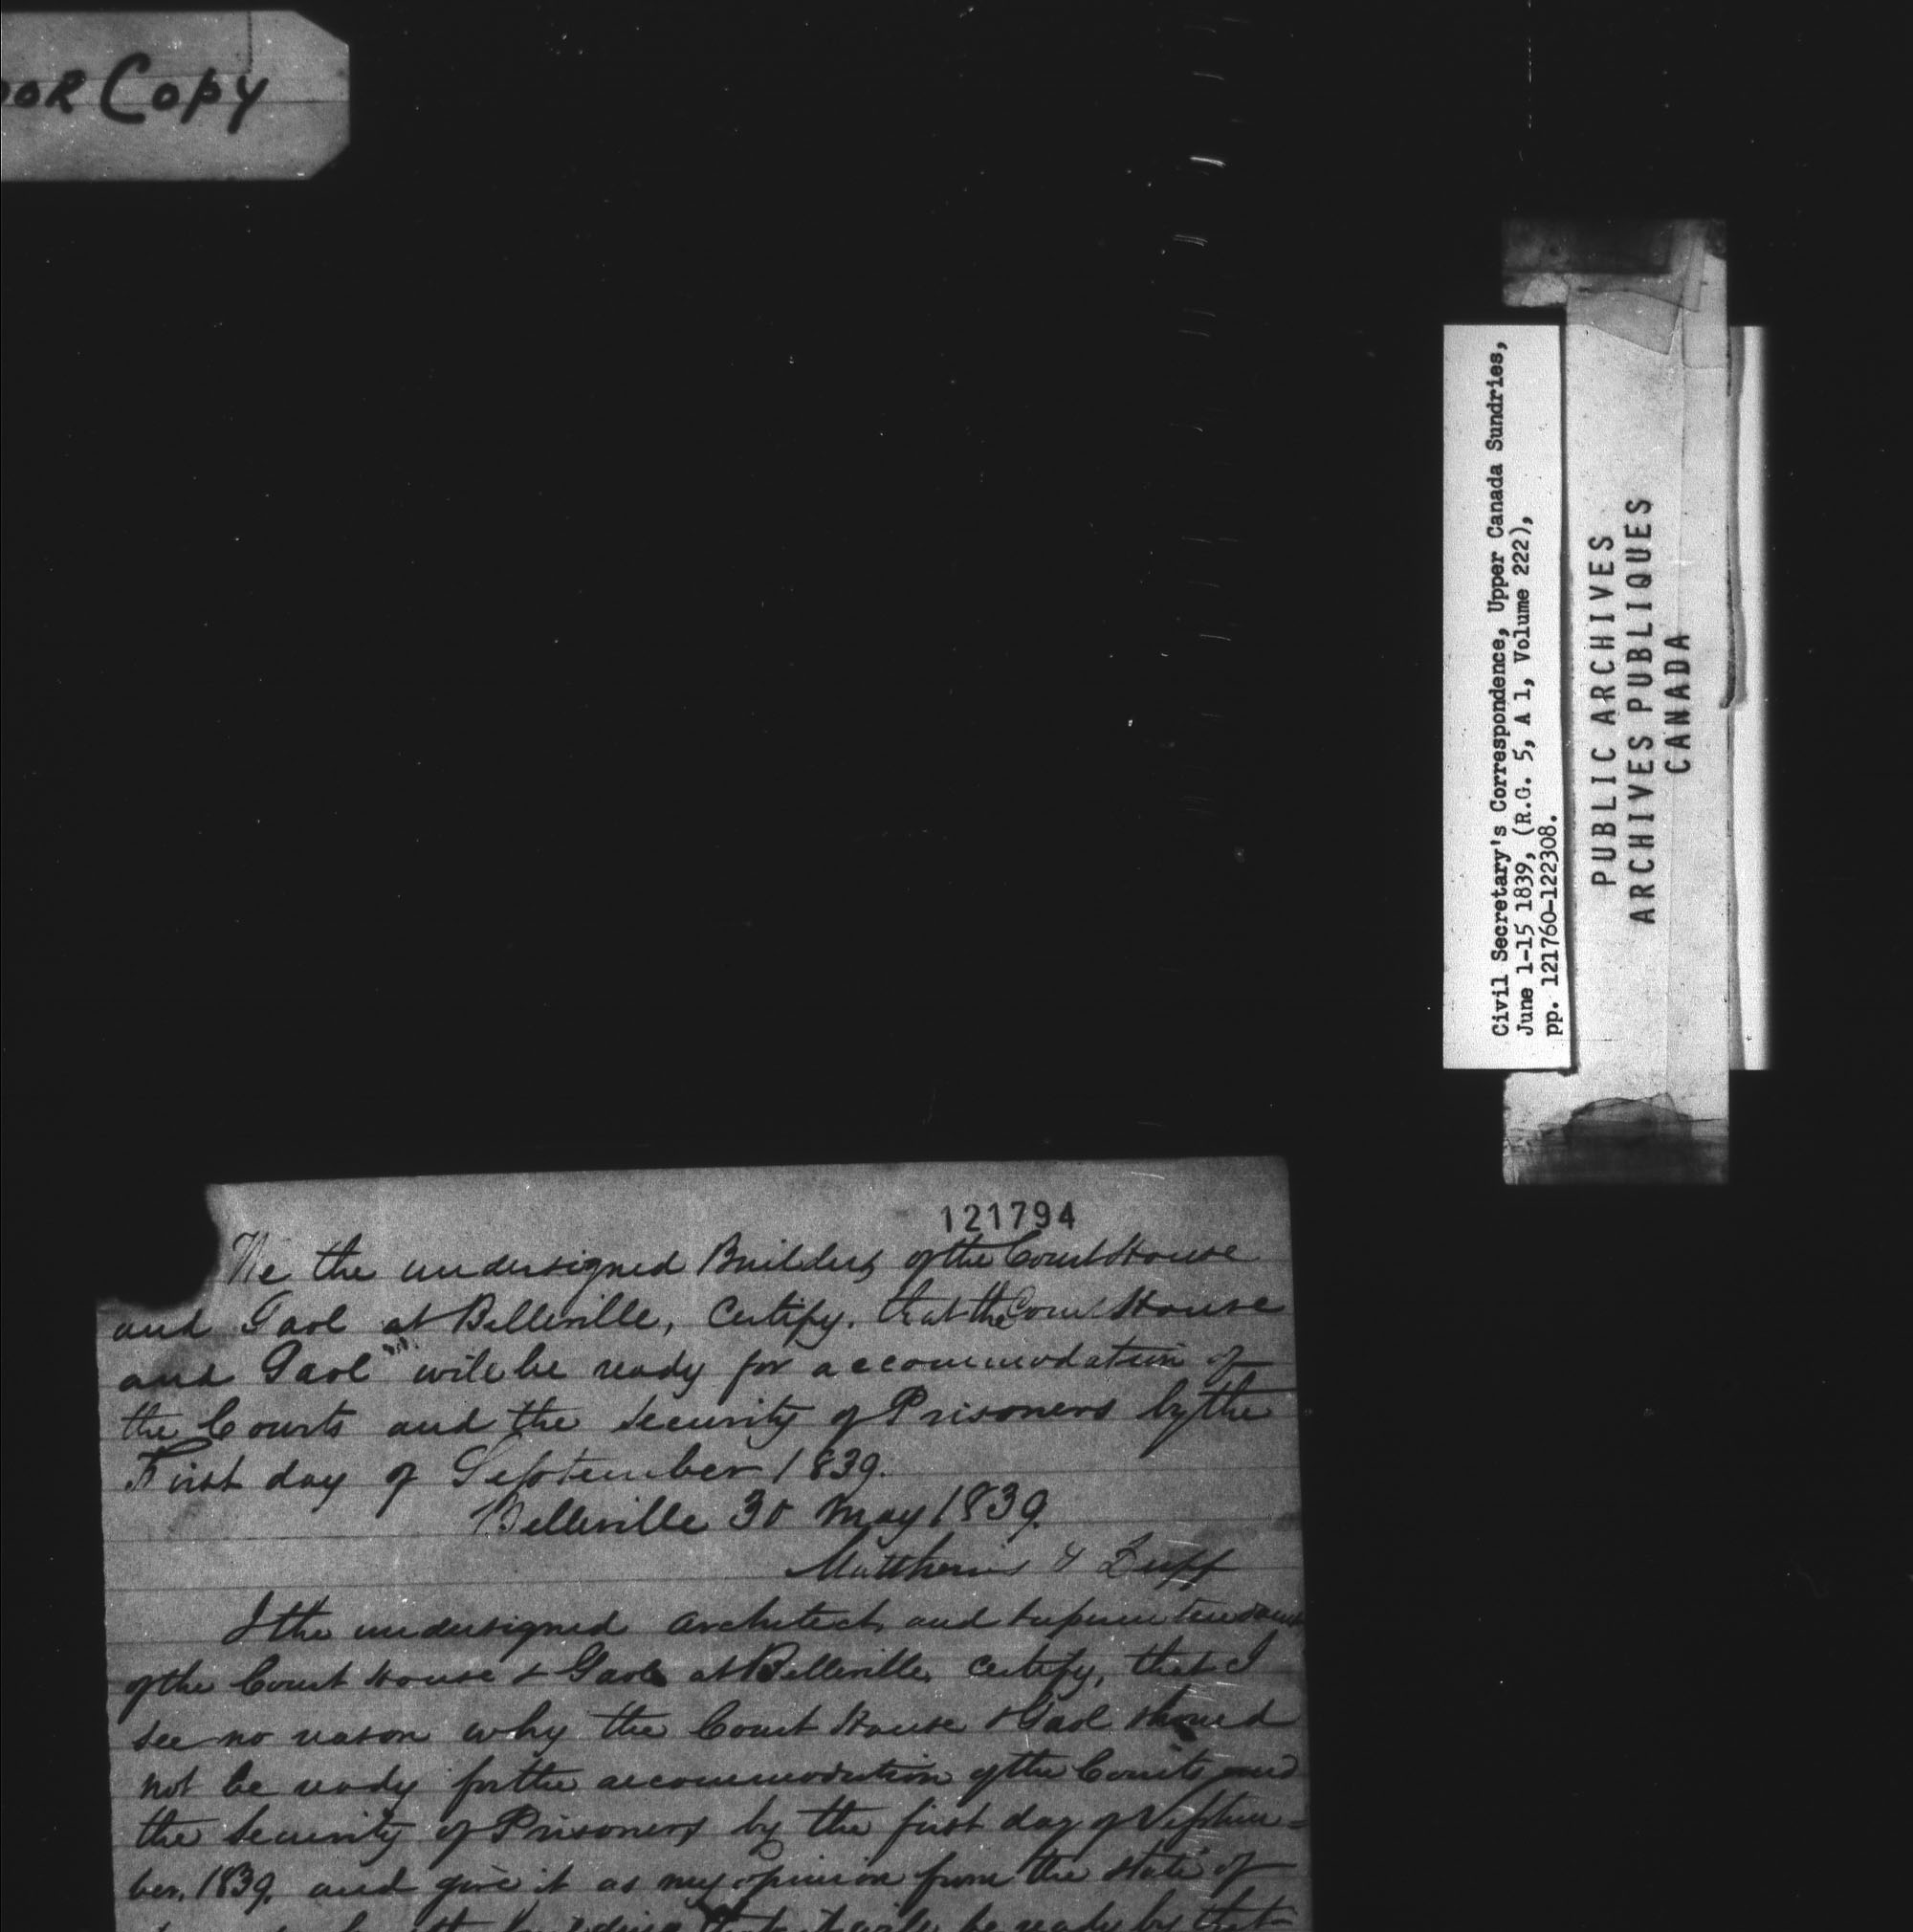 oor Copy
Civil Secretary's Correspondence, Upper Canada Sundries,
June 1-15 1839, (R.G. 5, A 1, Volume 222),
pp. 121760-122308.
PUBLIC ARCHIVES
ARCHIVES PUBLIQUES
CANADA
121794
We the undersigned Builders of the Court House
and Gaol at Belleville, Certify. that the Court House
and Gaol will be ready for accommodation of
the Courts and the security of Prisoners by the
First day of September 1839.
Belleville 30 May 1839.
Matthews & Zuff
I the undersigned Architect, and Superintendant
of the Court House & Gaol at Belleville, certify, that I
see no reason why the Court House & Gaol should
not be ready for the accommodation of the Courts, and
the Security of Prisoners by the first day of Septem=
ber. 1839. and give it as my opinion from the state of
be ready by that